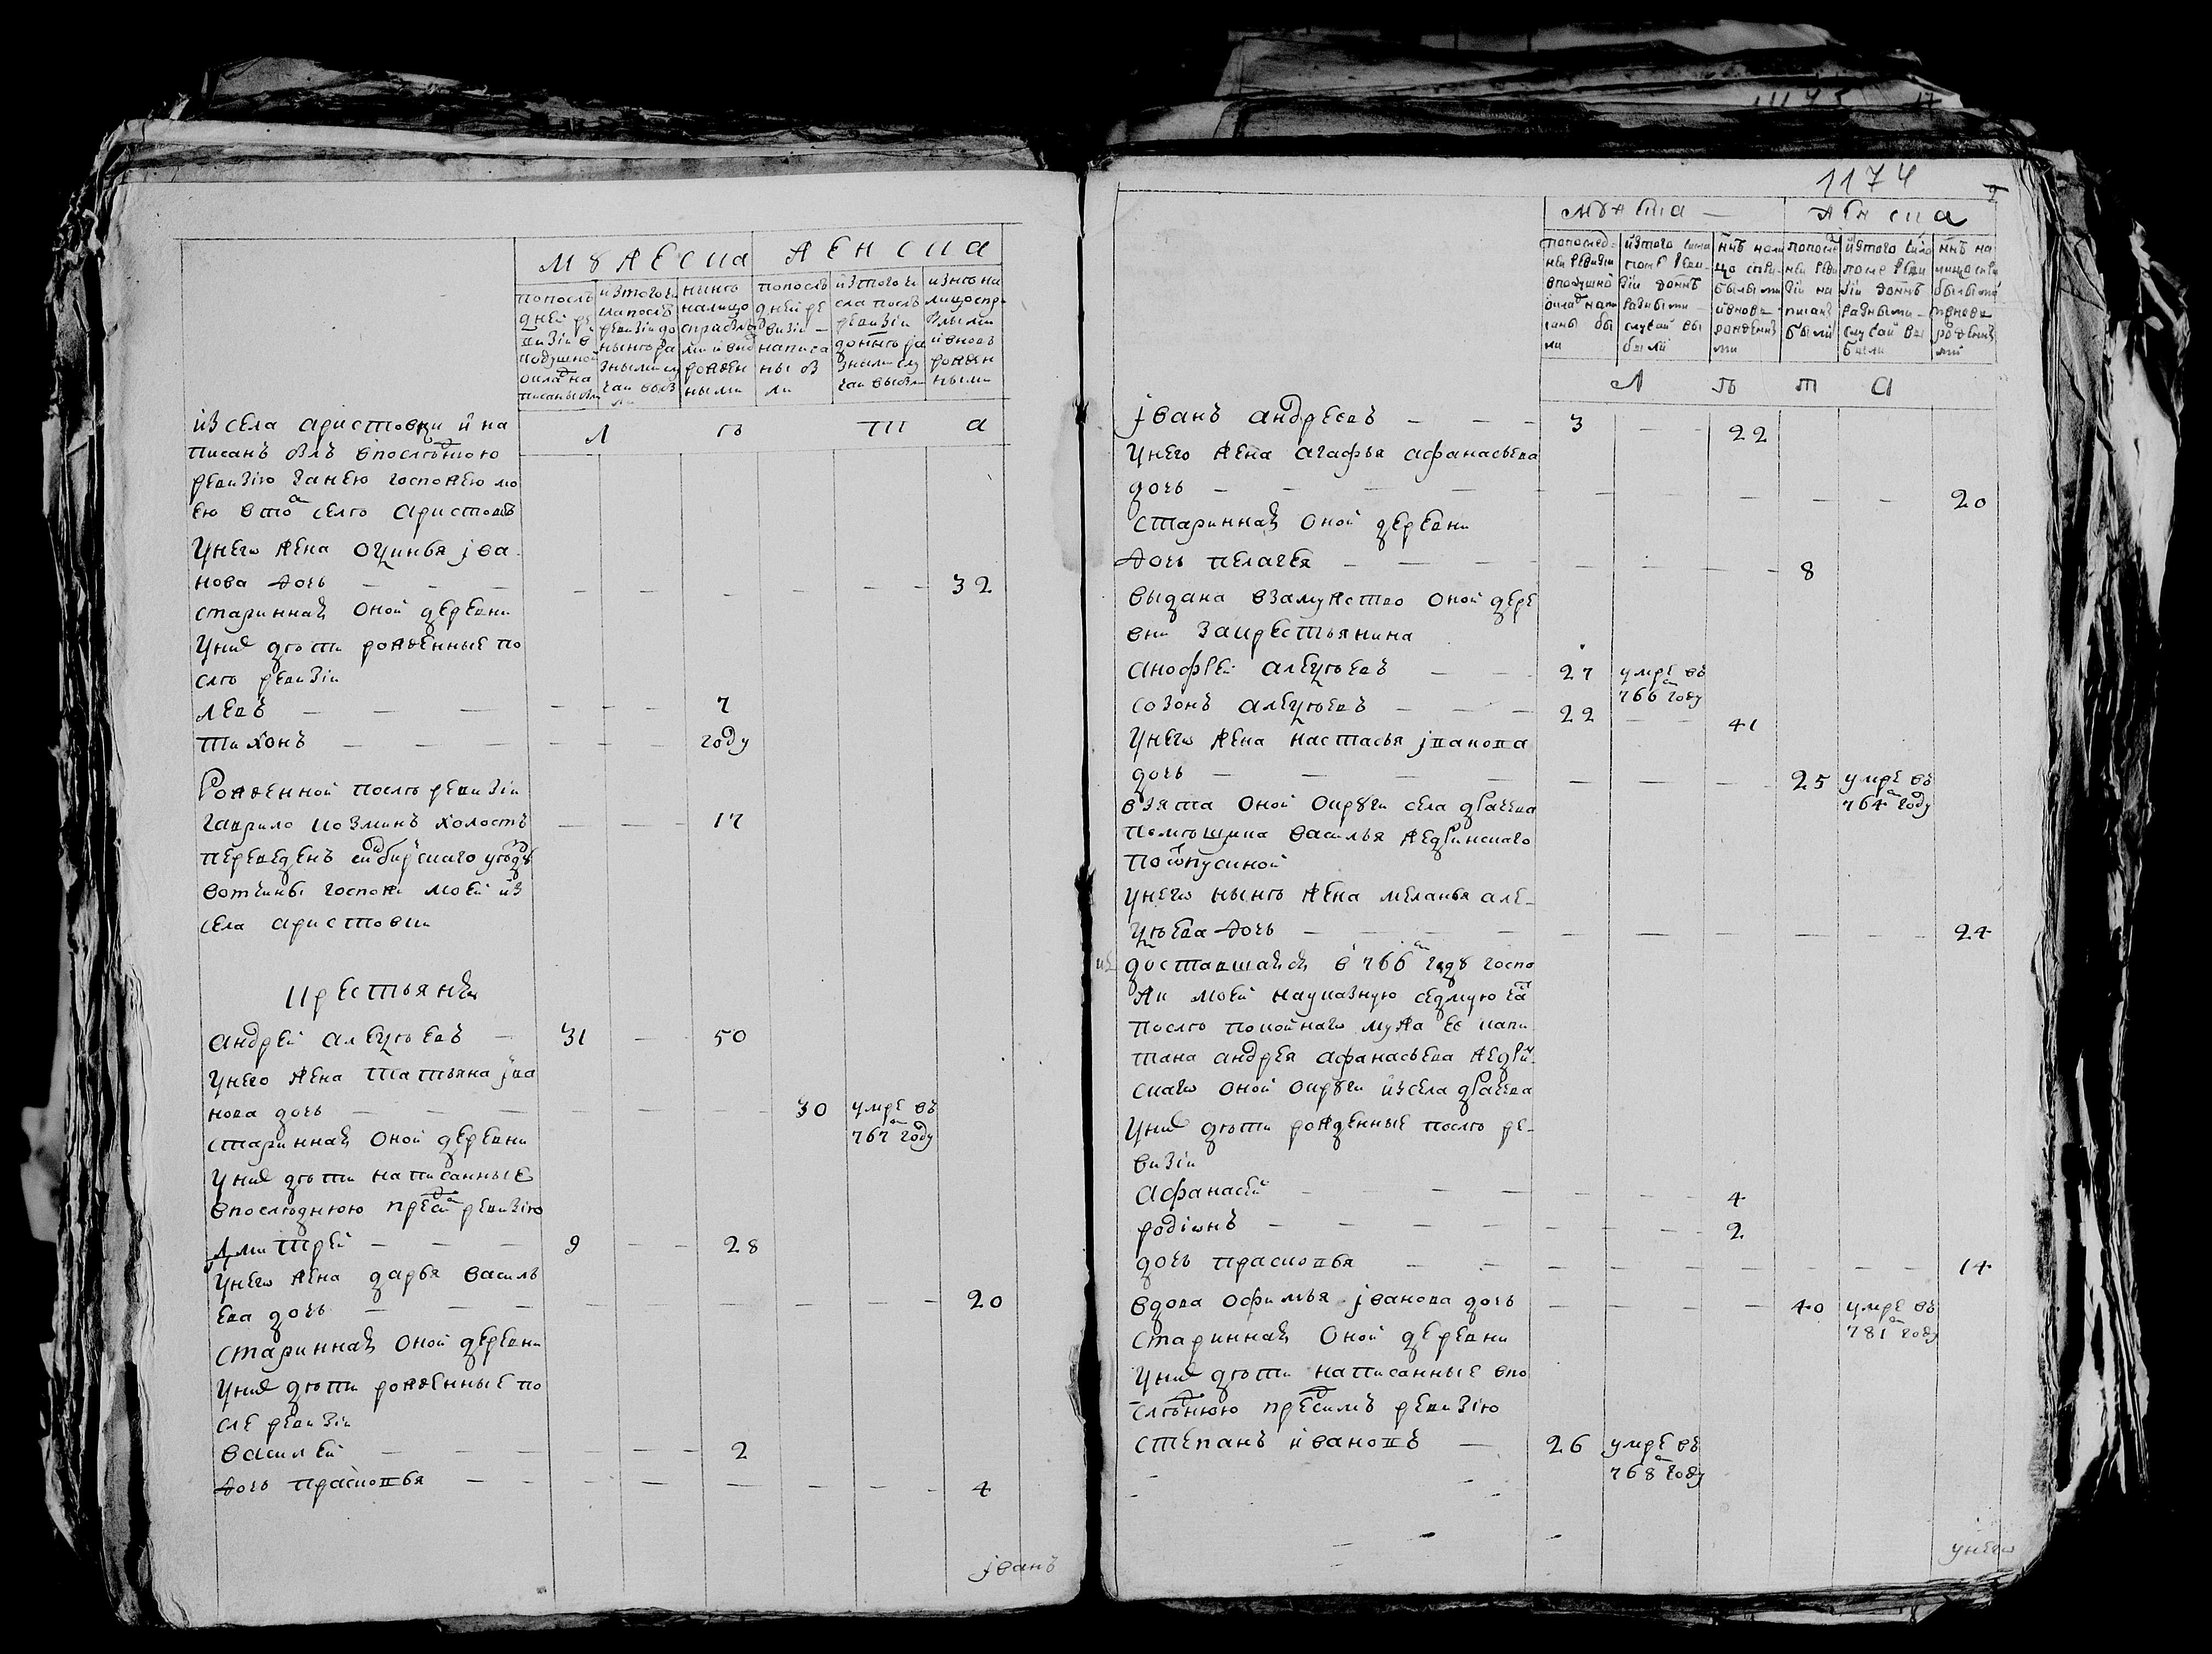 мужеска
женска
попослѣ
дней ре
визїи в
подушной
окладъ на
писаны бы
изтого чи
сла послѣ
ревизїи до
нынѣ ра
зными слу
чаи выбы
ли
нынѣ
налицо
справлы
ми и вно
рожден
ными
попослѣ
дней ре
визїи
написа
ны бы
ли
изтого чи
сла послѣ
ревизїи
донынѣ ра
зными слу
чаи выбы
и нынѣ на
лицо спри
былыми
и вновь
рожден
ными
л ѣ т а
изсела аристовки и на
писанъ былъ впослѣднюю
ревизїю занею госпожею мо
ею втом селѣ аристовкѣ
унего жена оѳимья јва
нова дочь — — — — — — — — 32
стариннаѧ оной деревни
уних дѣти рожденные по
слѣ ревизїи
левъ — — — — — — 7
тихонъ — — — — — — году
Рожденной послѣ ревизїи
гаврило козминъ холостъ — — 17
переведенъ симбирскаго уѣзду
вотчины госпожи моей из
села аристовки
крестьянѧ
андрей алеѯѣевъ — 31 — 50
унего жена татьяна јва
нова дочь — — — — — — 30 умре въ
767м году
стариннаѧ оной деревни
уних дѣти написанные
впослѣднюю пред сим ревизїю
дмитрей — — — 9 — — 28
унегѡ жена дарья василь
ева дочь — — — — — — — — 20
стариннаѧ оной деревни
уних дѣти рожденные по
сле ревизїи
василей — — — — — — 2
дочь прасковья — — — — — — — — 4
јванъ
1174
мужеска —
женска
попослед-
ней ревизїи
вподушно
оклад напи
саны бы
ли
изтого числа
после реви
зїи донынѣ
разными
случаи вы
были
нынѣ нали
цо спри-
былыми
и вновь
рожденны
ми
попосле
ней реви
зїи на
писаны
были
изтого число
после реви
зїи донынѣ
разными —
случаи вы
были
нынѣ на
лицо спри
былыми
и вновь
рожденны
ми
л ѣ т а
јванъ андреевъ — — — 3 — — 22
унего жена агафья афанасьева
дочь — — — — — — — — — — 20
стариннаѧ оной деревни
дочь пелагея — — — — — — 8
выдана взамужство оной дере
вни закрестьянина
анофрей алеѯѣевъ — — — 27 умре въ
766м году
созонъ алеѯѣевъ — — — 22 — — 41
унегѡ жена настасья јванова
дочь — — — — — — — 25 умре въ
764м году
взята оной округи села драчева
помѣщика василья жедринскаго
поѿпускной
унегѡ нынѣ жена меланья але-
ѯѣева дочь — — — — — — — — — 24
доставшаѧсѧ в 766м году госпо
жи моей науказную седмую часть
послѣ покойнагѡ мужа ее капи
тана андрея афанасьева жедрин
скагѡ оной округи изсела драчева
уних дѣти рожденные послѣ ре-
визїи
афанасей — — — — — — 4
родїѡнъ — — — — — — 2
дочь прасковья — — — — — — — — 14
вдова офимья јванова дочь — — — — 40 умре въ
781м году
стариннаѧ оной деревни
уних дѣти написанные впо
слѣднюю пред симъ ревизїю
степанъ ивановъ — 26 умре въ
768м году
унегѡ